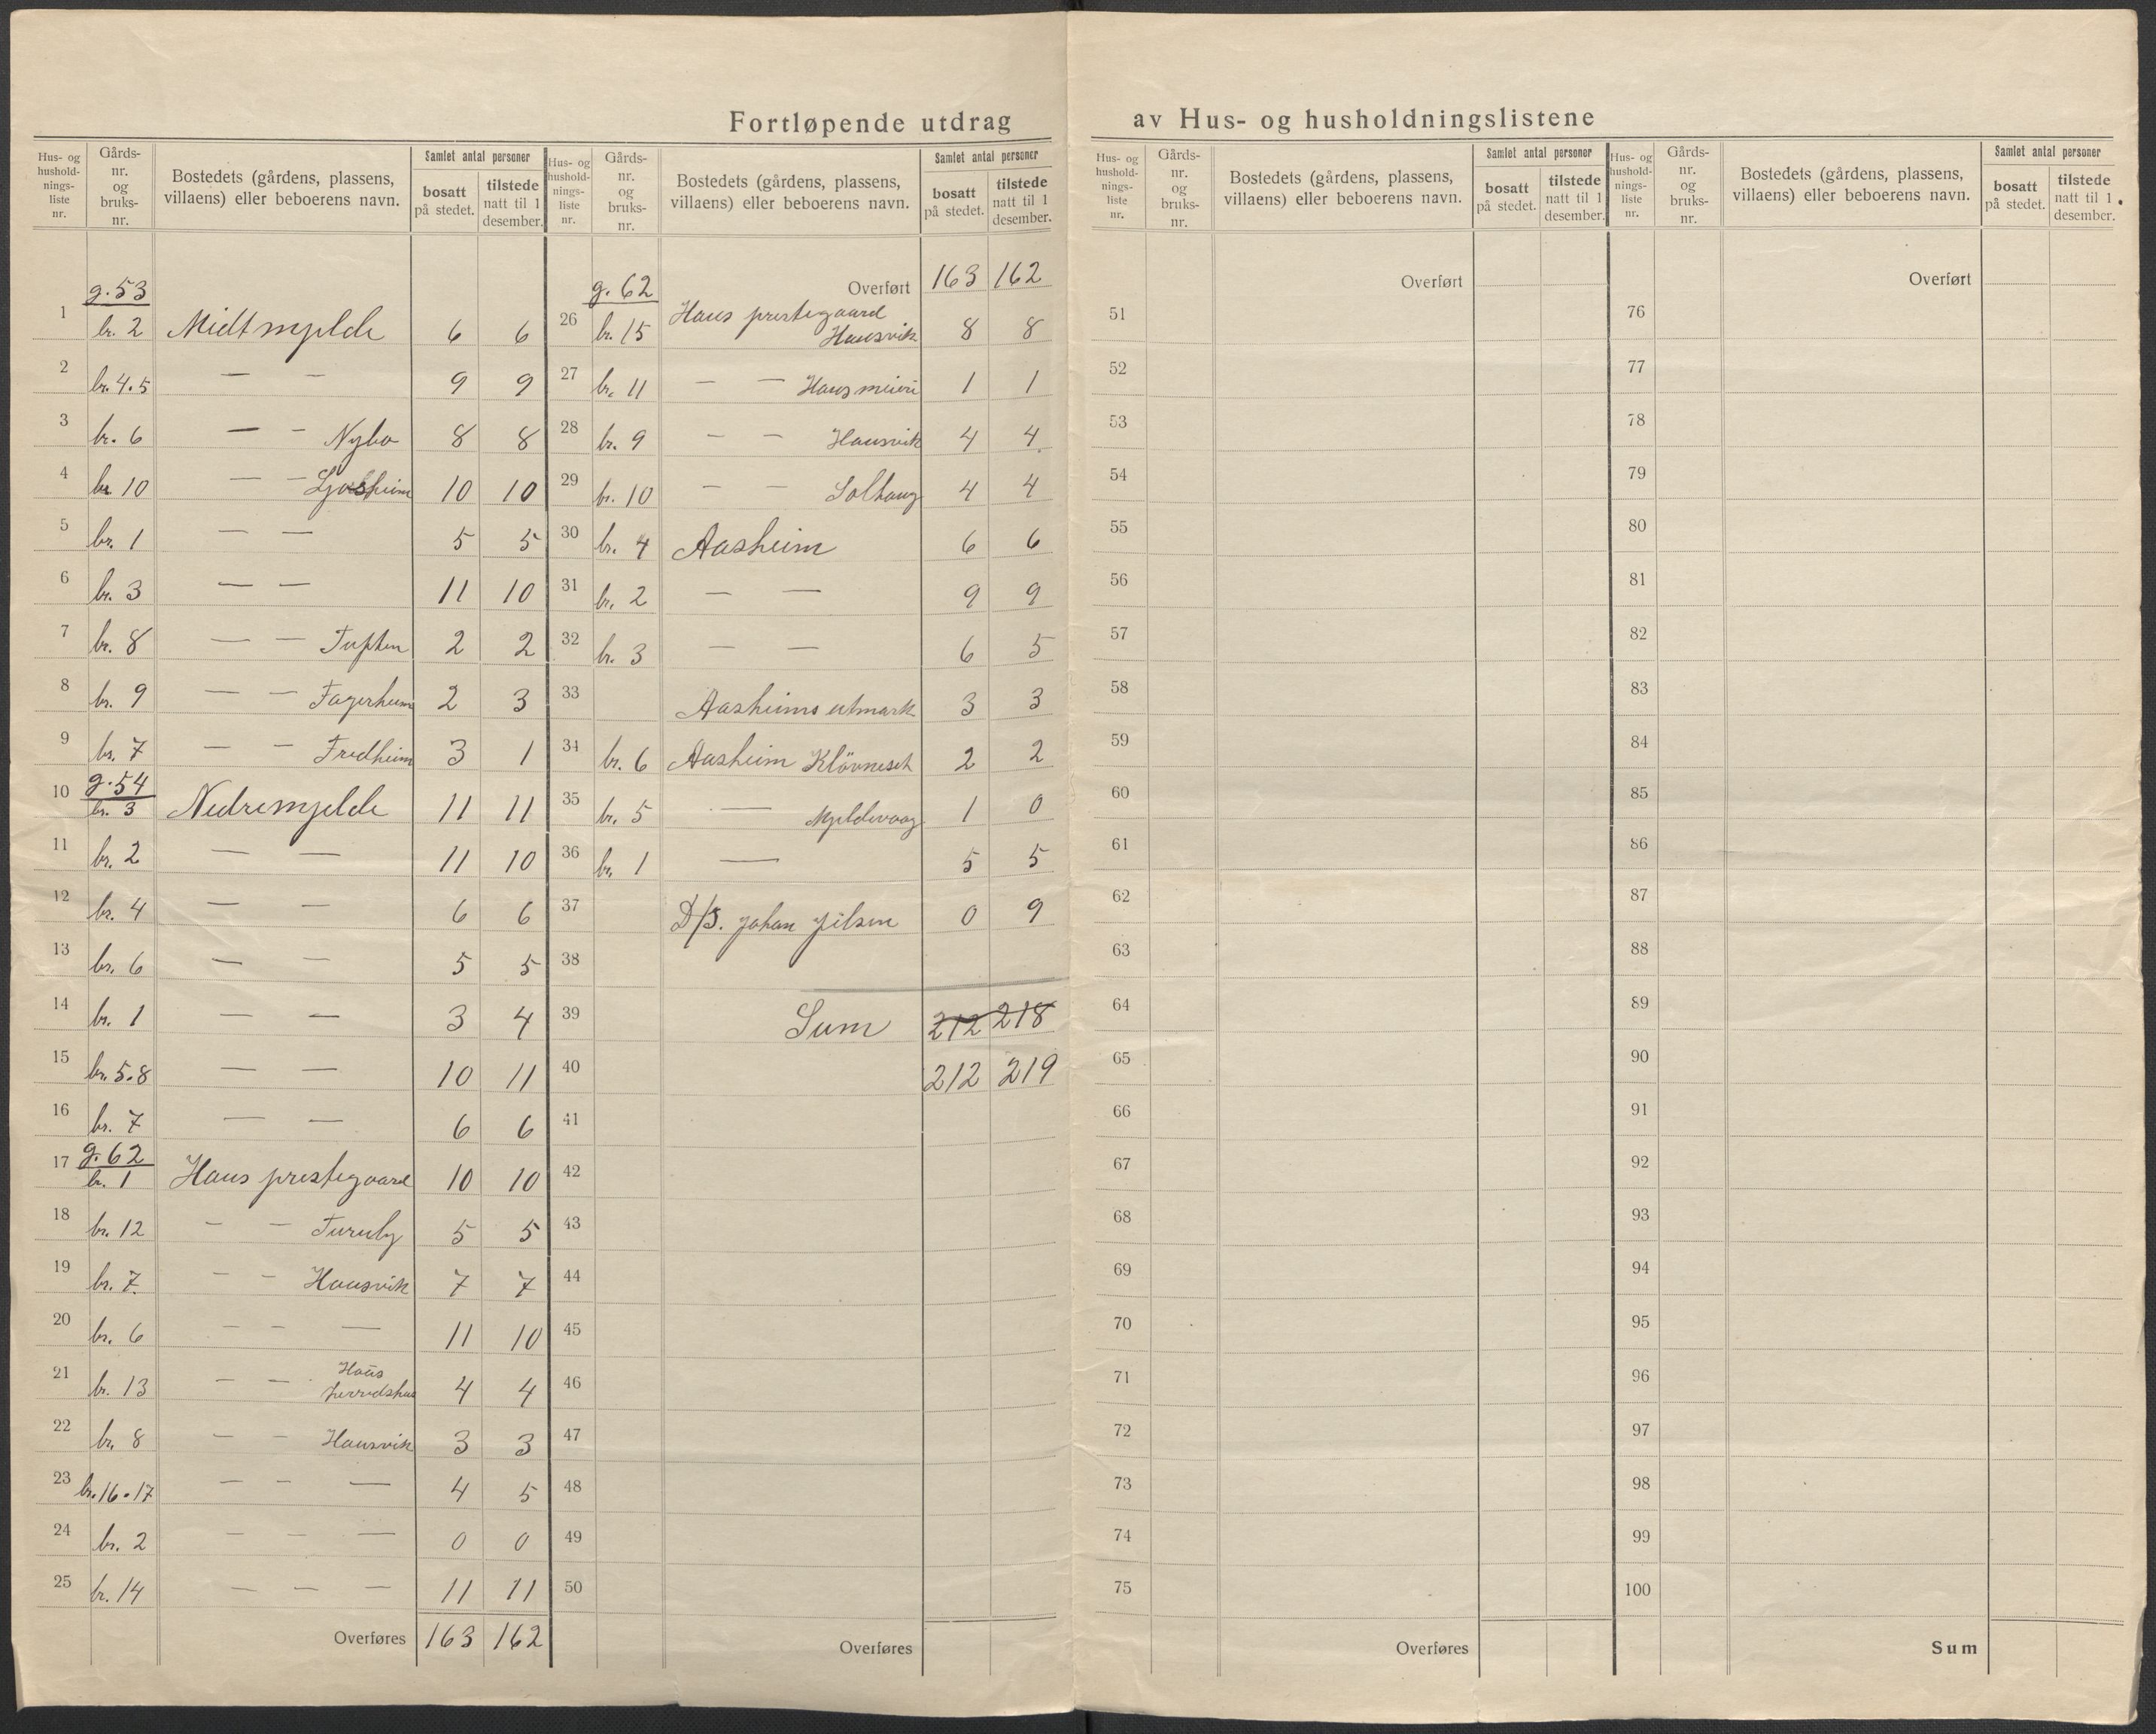 Fortløpende utdrag av Hus- og husholdningslistene
Hus- og husholdnings-liste nr. | Gårds-nr. og bruks-nr. | Bostedets (gårdens, plassens, villaens) eller beboerens navn. | Samlet antal personer | bosatt på stedet. | tilstede natt til 1 desember.
1 g. 53 br. 2 Midtmjelde 6 6
2 br. 4.5 — — 9 9
3 br. 6 — — Nybo 8 8
4 br. 10 — — 10 10
5 br. 1 — — 5 5
6 br. 3 — — 11 10
7 br. 8 — — Tuften 2 2
8 br. 9 — — Fagerheim 2 3
9 br. 7 — — Fredheim 3 1
10 g. 54 br. 3 Nedremjelde 11 11
11 br. 2 — — 11 10
12 br. 4 — — 6 6
13 br. 6 — — 5 5
14 br. 1 — — 3 4
15 br. 5.8 — — 10 11
16 br. 7 — — 6 6
17 g. 62 br. 1 Haus prestegaard 10 10
18 br. 12 — — 5 5
19 br. 7. — — Hausvik 7 7
20 br. 6 — — — 11 10
21 br. 13 — — Haus herredshus 4 4
22 br. 8 — — Hausvik 3 3
23 br. 16.17 — — — 4 5
24 br. 2 — — — 0 0
25 br. 14 — — — 11 11
Overføres 163 162
Hus- og husholdnings-liste nr. | Gårds-nr. og bruks-nr. | Bostedets (gårdens, plassens, villaens) eller beboerens navn. | Samlet antal personer | bosatt på stedet. | tilstede natt til 1 desember.
Overført 163 162
26 g. 62 br. 15 Haus prestegaard Hausvik 8 8
27 br. 11 — — Haus meieri 1 1
28 br. 9 — — Hausvik 4 4
29 br. 10 — — Solhaug 4 4
30 br. 4 Aasheim 6 6
31 br. 2 — — 9 9
32 br. 3 — — 6 5
33 Aasheims utmark 3 3
34 br. 6 Aasheim Klövneset 2 2
35 br. 5 — Mjeldevaag 1 0
36 br. 1 — 5 5
37 D/S. Johan Jilsen 0 9
38
39 Sum 212 218
40 212 219
41
42
43
44
45
46
47
48
49
50
Overføres
Hus- og husholdnings-liste nr. | Gårds-nr. og bruks-nr. | Bostedets (gårdens, plassens, villaens) eller beboerens navn. | Samlet antal personer | bosatt på stedet. | tilstede natt til 1 desember.
Overført
51
52
53
54
55
56
57
58
59
60
61
62
63
64
65
66
67
68
69
70
71
72
73
74
75
Overføres
Hus- og husholdnings-liste nr. | Gårds-nr. og bruks-nr. | Bostedets (gårdens, plassens, villaens) eller beboerens navn. | Samlet antal personer | bosatt på stedet. | tilstede natt til 1 desember.
Overført
76
77
78
79
80
81
82
83
84
85
86
87
88
89
90
91
92
93
94
95
96
97
98
99
100
Sum